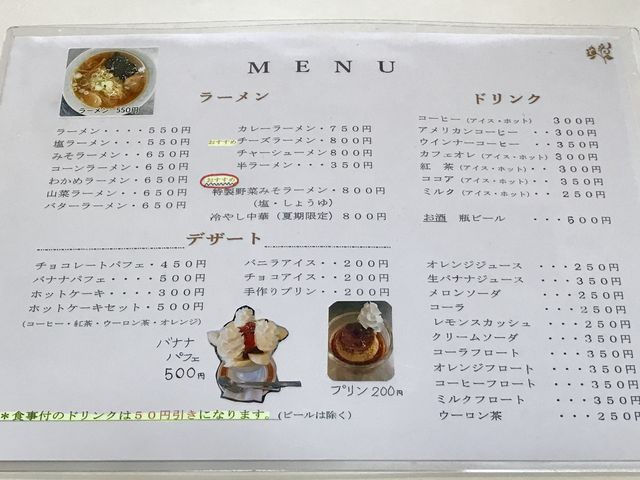 MENU
ラーメン 550円
ラーメン
ラーメン・・・・550円
塩ラーメン・・550円
みそラーメン・・650円
コーンラーメン・650円
わかめラーメン・650円
山菜ラーメン・・650円
バターラーメン・・650円
カレーラーメン・750円
おすすめ チーズラーメン・800円
チャーシューメン・800円
半ラーメン・・・350円
おすすめ
特製野菜みそラーメン・800円
(塩・しょうゆ)
冷やし中華(夏期限定)800円
デザート
チョコレートパフェ・450円
バナナパフェ・・・500円
ホットケーキ・・・300円
ホットケーキセット・500円
(コーヒー・紅茶・ウーロン茶・オレンジ)
バニラアイス・・200円
チョコアイス・・200円
手作りプリン・・200円
バナナ
パフェ
500円
プリン200円
*食事付のドリンクは50円引きになります。(ビールは除く)
ドリンク
コーヒー(アイス・ホット) 300円
アメリカンコーヒー ・・300円
ウインナーコーヒー ・・350円
カフェオレ(アイス・ホット) 300円
紅 茶(アイス・ホット) 300円
ココア(アイス・ホット)・350円
ミルク(アイス・ホット)・250円
お酒 瓶ビール ・・・500円
オレンジジュース ・・・250円
生バナナジュース ・・・350円
メロンソーダ ・・・250円
コーラ ・・・250円
レモンスカッシュ ・・・250円
クリームソーダ ・・・350円
コーラフロート ・・・350円
オレンジフロート ・・・350円
コーヒーフロート ・・・350円
ミルクフロート ・・・350円
ウーロン茶 ・・・250円